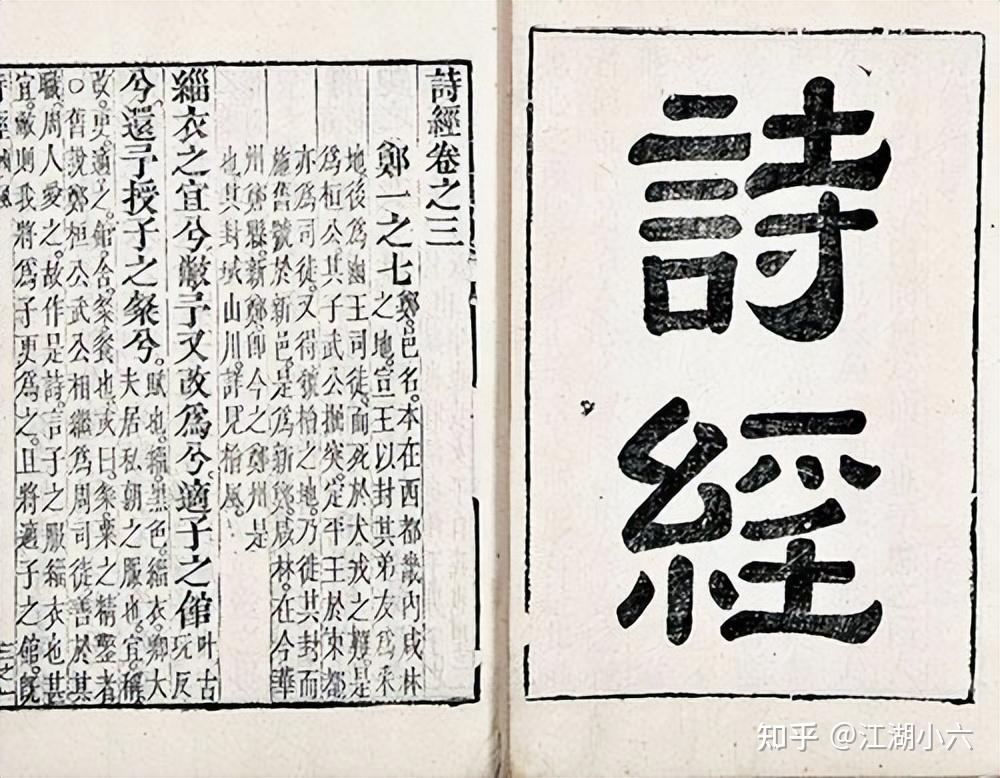 詩經
詩經卷之三
鄭一之七
鄭。邑名。本在西都畿內咸林
之地。宣王以封其弟友爲采
地後爲幽王司徒。而死於犬戎之難。是
爲桓公。其子武公掘突。定平王於東都
亦爲司徒。又得虢檜之地。乃徙其封。而
施舊號於新邑。是爲新鄭。咸林。在今華
州鄭縣。新鄭。卽今之鄭州是
也其封域山川。詳見檜風。
緇衣之宜兮敝予又改爲兮。適子之館
叶古
玩反
兮。還予授子之粲兮。
賦也。緇。黑色。緇衣。卿大
夫居私朝之服也。宜。稱
改。更。適。之。館。舍。粲。餐也。或曰。粲。粟之精鑿者
○舊說。鄭桓公武公相繼爲周司徒。善於其
職。周人愛之。故作是詩。言子之服緇衣也甚
宜。敝則我將爲子更爲之。且將適子之館。旣
知乎 @江湖小六